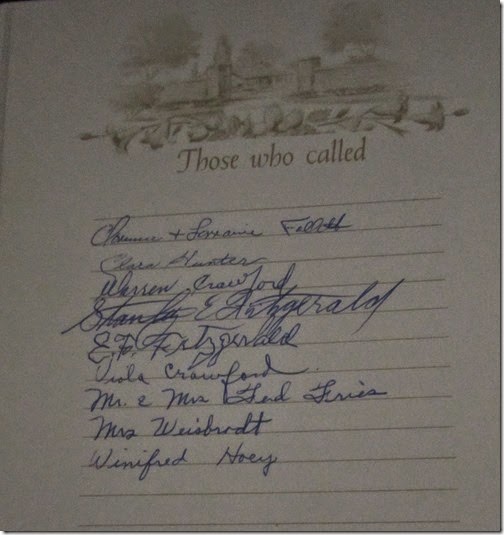 Those who called
+ Lorraine
Clara Hunter
Warren Crawford
Stanley E Fitzgerald
E.F. Fitzgerald
Viola Crawford
Mr. & Mrs Fred Fries
Mrs Weisbrodt
Winifred Hoey